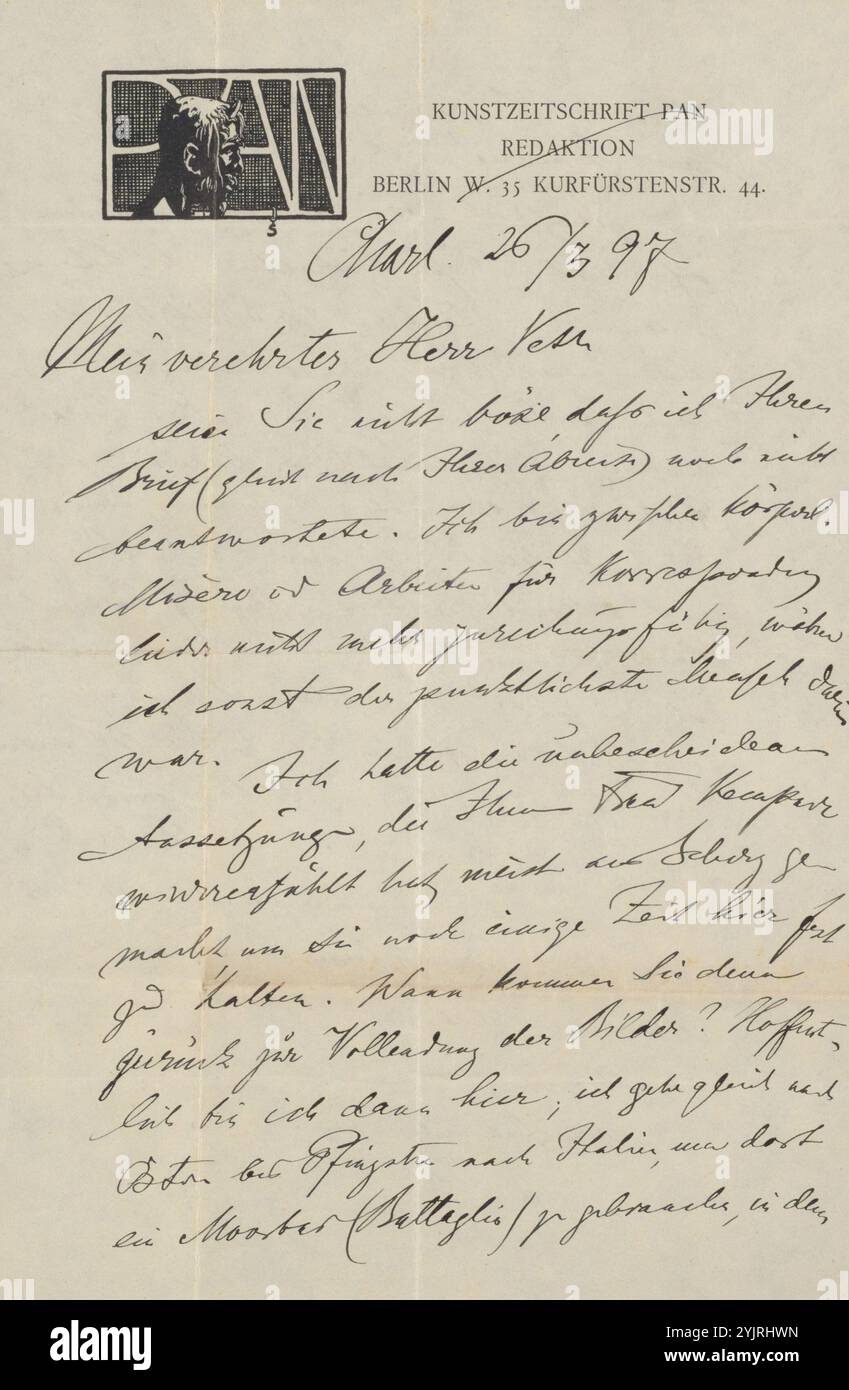 PAN
JS
KUNSTZEITSCHRIFT PAN
REDAKTION
BERLIN W. 35 KURFÜRSTENSTR. 44.
Charl. 26/3 97
Mein verehrter Herr Veth
seien Sie nicht böse, dass ich Ihren
Brief (gleich nach Ihrer Abreise) noch nicht
beantwortete. Ich bin zwischen körperl.
Misère und Arbeiten für Korrespondenz
leider nicht mehr zurechnungsfähig, während
ich sonst der pünktlichste Mensch darin
war. Ich hatte die unbescheidenen
Aussetzungen, die Ihnen Frau
hat, meist aus Scherz ge
macht, um Sie noch einige Zeit hier fest
zu halten. Wann kommen Sie denn
zurück zur Vollendung der Bilder? Hoffent-
lich bin ich dann hier, ich gehe gleich nach
Ostern bis Pfingsten nach Italien, um dort
ein Moorbad (Battaglia) zu gebrauchen, in dem
alamy
Image ID: 2YJRHWN
www.alamy.com